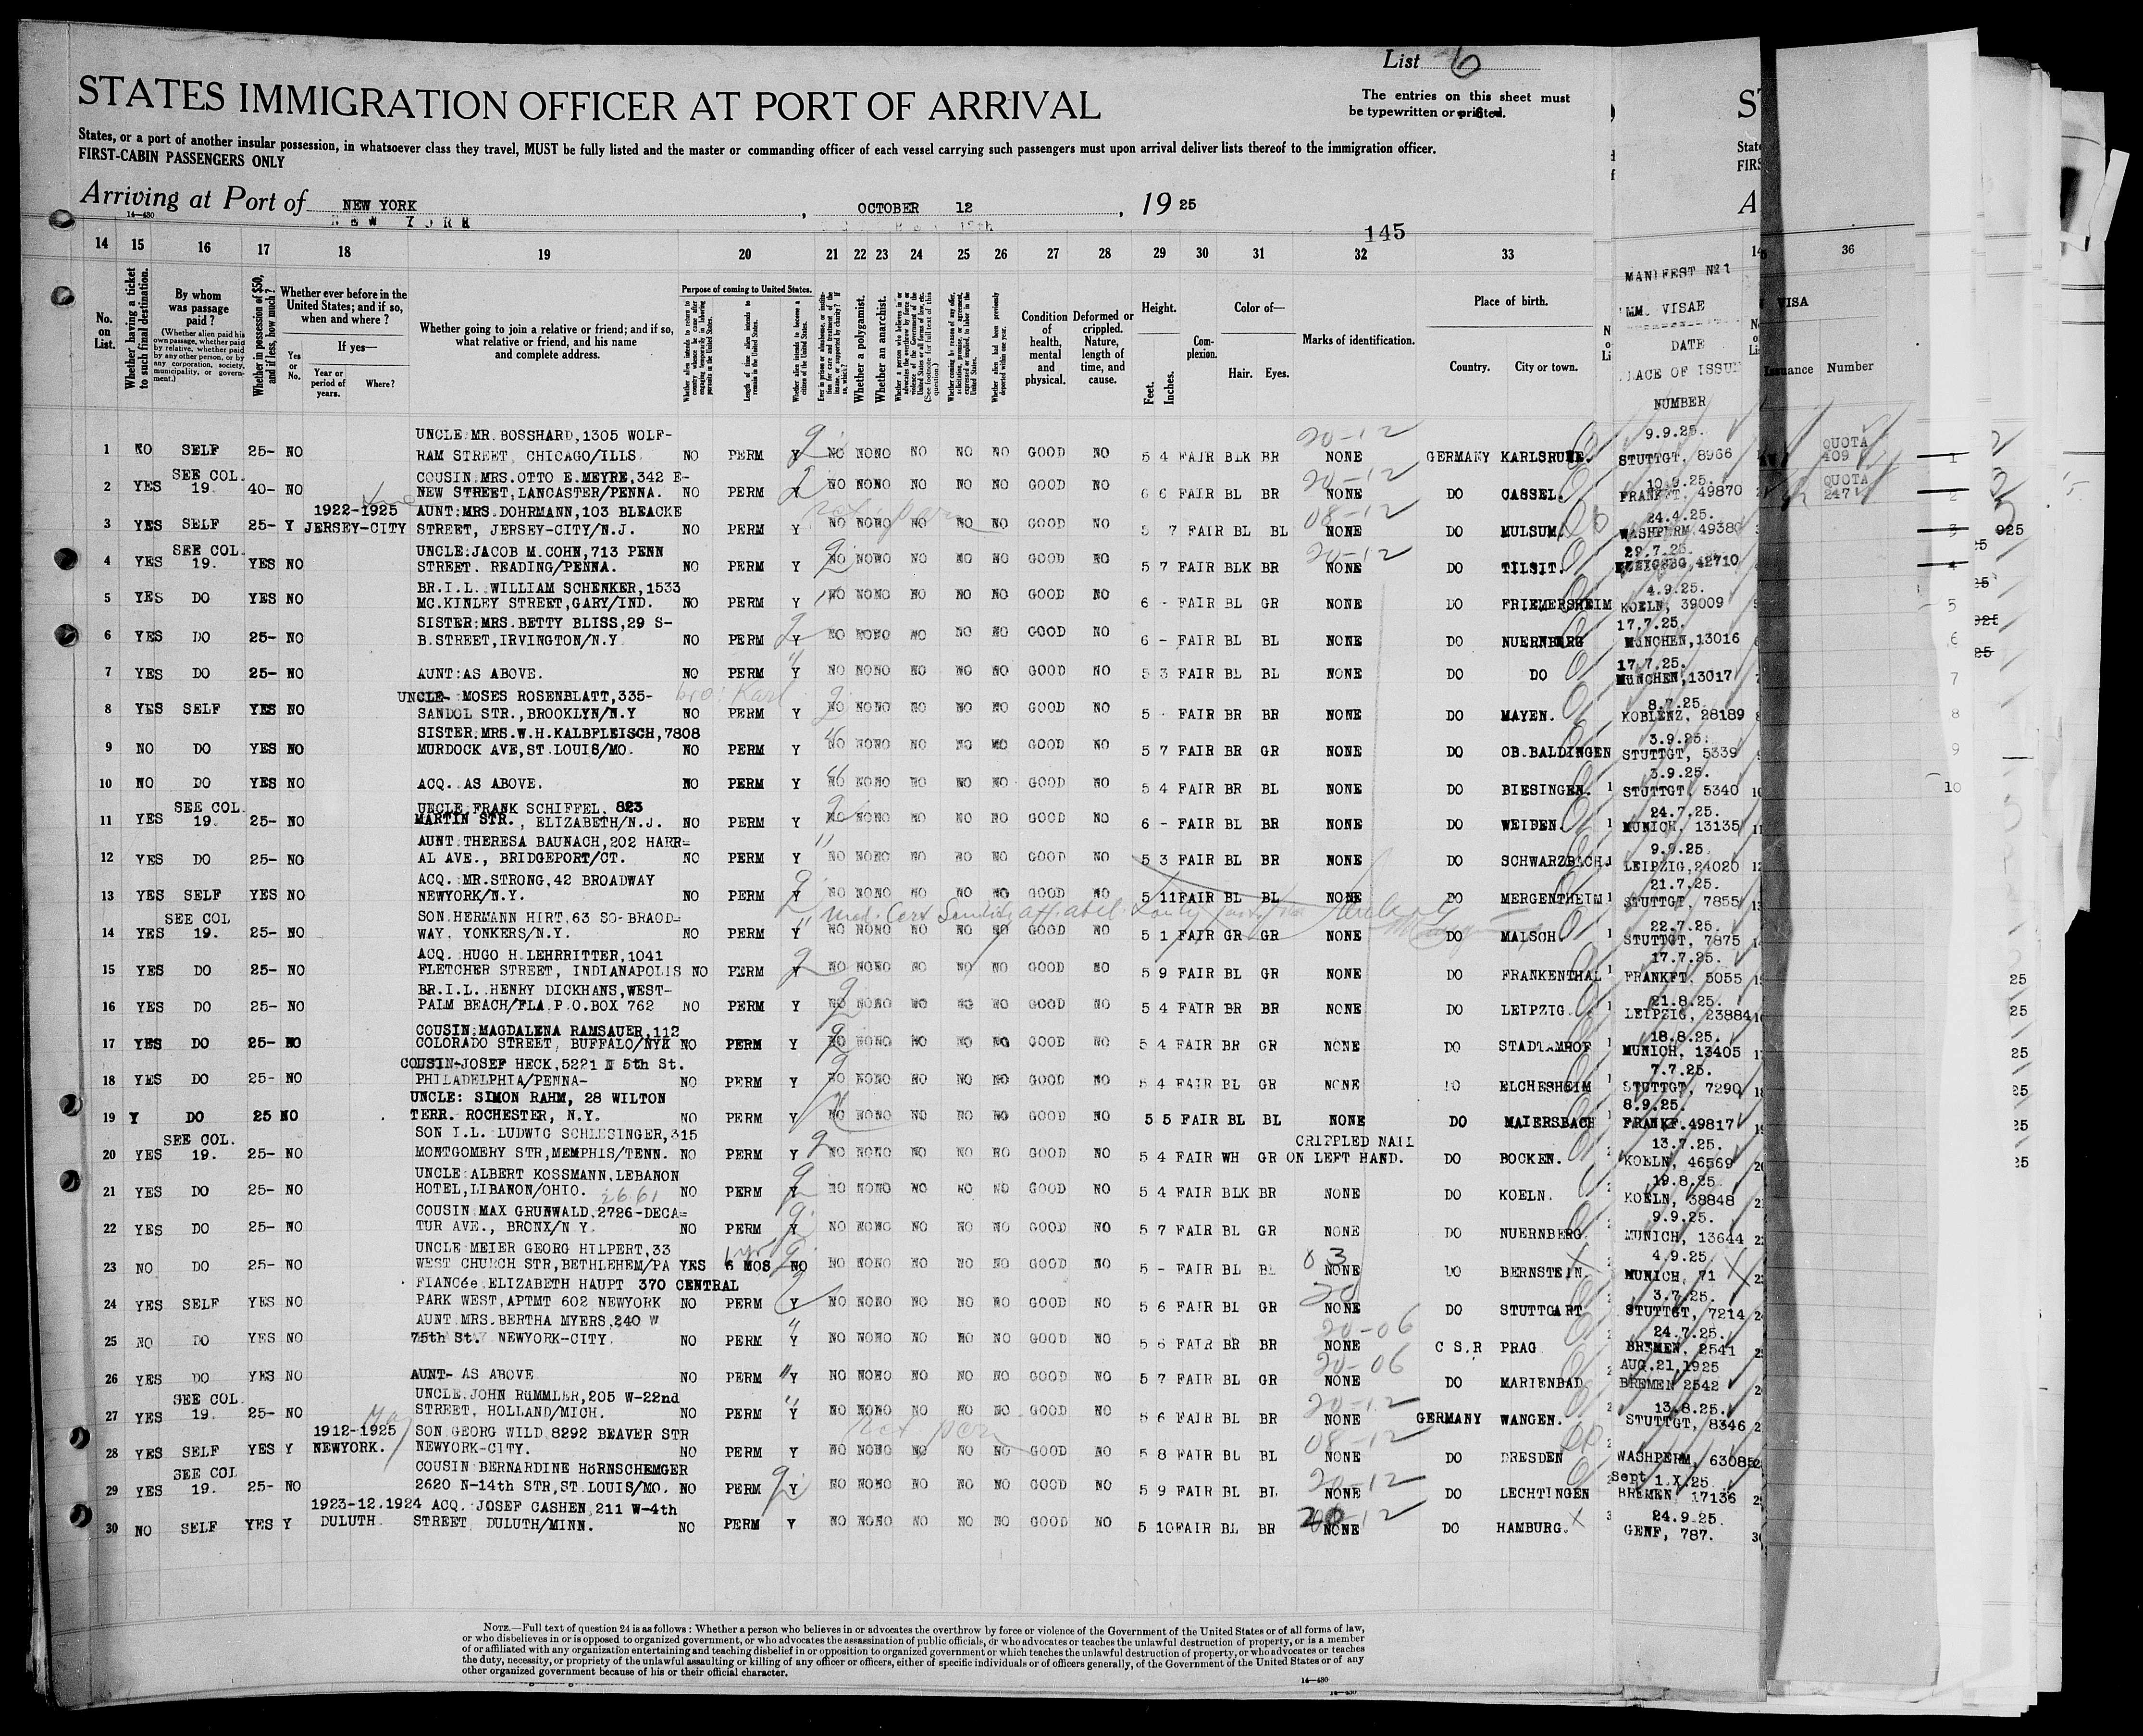 List 6
STATES IMMIGRATION OFFICER AT PORT OF ARRIVAL
The entries on this sheet must
be typewritten or printed.
States, or a port of another insular possession, in whatsoever class they travel, MUST be fully listed and the master or commanding officer of each vessel carrying such passengers must upon arrival deliver lists thereof to the immigration officer.
FIRST-CABIN PASSENGERS ONLY
Arriving at Port of NEW YORK, OCTOBER 12, 19 25
14-430
145
14 15 16 17 18 19 20 21 22 23 24 25 26 27 28 29 30 31 32 33 36
No. on List.
Whether having a ticket to such final destination.
By whom was passage paid?
(Whether alien paid his own passage, whether paid by relative, whether paid by any other person, or by any corporation, society, municipality, or government.)
Whether in possession of $50, and if less, how much?
Whether ever before in the United States; and if so, when and where?
Yes or No.
If yes—
Year or period of years.
Where?
Whether going to join a relative or friend; and if so, what relative or friend, and his name and complete address.
Purpose of coming to United States.
Length of time alien intends to remain in the United States.
Whether alien intends to become a citizen of the United States.
Whether a polygamist.
Whether an anarchist.
Condition of health, mental and physical.
Deformed or crippled. Nature, length of time, and cause.
Height.
Feet. Inches.
Complexion.
Color of—
Hair. Eyes.
Marks of identification.
Place of birth.
Country. City or town.
MANIFEST No 1
IMM. VISAE
DATE
PLACE OF ISSUE
NUMBER
VISA
Issuance Number
UNCLE:MR. BOSSHARD,1305 WOLF- 20-12 9.9.25. QUOTA
1 NO SELF 25- NO RAM STREET, CHICAGO/ILLS NO PERM Y NO NO NO NO NO NO GOOD NO 5 4 FAIR BLK BR NONE GERMANY KARLSRUHE. STUTTGT, 8966 409
SEE COL. COUSIN:MRS.OTTO E.MEYRE,342 E- 20-12 10.9.25. QUOTA
2 YES 19. 40- NO NEW STREET,LANCASTER/PENNA. NO PERM Y NO NO NO NO NO NO GOOD NO 6 6 FAIR BL BR NONE DO CASSEL. FRANKFT, 49870 2471
1922-1925 AUNT:MRS.DOHRMANN,103 BLEACKE 08-12 24.4.25.
3 YES SELF 25- Y JERSEY-CITY STREET, JERSEY-CITY/N.J. NO PERM Y NO NO NO NO NO NO GOOD NO 5 7 FAIR BL BL NONE DO MULSUM. WASHPERM,49380
SEE COL. UNCLE:JACOB M.COHN,713 PENN 20-12 29.7.25.
4 YES 19. YES NO STREET. READING/PENNA. NO PERM Y NO NO NO NO NO NO GOOD NO 5 7 FAIR BLK BR NONE DO TILSIT. 42710
BR.I.L. WILLIAM SCHENKER,1533 4.9.25.
5 YES DO YES NO MC.KINLEY STREET,GARY/IND. NO PERM Y NO NO NO NO NO NO GOOD NO 6 - FAIR BL GR NONE DO FRIEMERSHEIM KOELN, 39009
SISTER:MRS.BETTY BLISS,29 S- 17.7.25.
6 YES DO 25- NO B.STREET,IRVINGTON/N.Y NO PERM Y NO NO NO NO NO NO GOOD NO 6 - FAIR BL BL NONE DO NUERNBERG MUNCHEN,13016
17.7.25.
7 YES DO 25- NO AUNT:AS ABOVE. NO PERM Y NO NO NO NO NO NO GOOD NO 5 3 FAIR BL BL NONE DO DO MUNCHEN,13017
UNCLE- MOSES ROSENBLATT,335- bro: Karl 8.7.25.
8 YES SELF YES NO SANDOL STR.,BROOKLYN/N.Y NO PERM Y NO NO NO NO NO NO GOOD NO 5 - FAIR BR BR NONE DO MAYEN. KOBLENZ, 28189
SISTER:MRS.W.H.KALBFLEISCH,7808 3.9.25.
9 NO DO YES NO MURDOCK AVE,ST.LOUIS/MO. NO PERM Y NO NO NO NO NO NO GOOD NO 5 7 FAIR BR GR NONE DO OB.BALDINGEN STUTTGT, 5339
3.9.25.
10 NO DO YES NO ACQ. AS ABOVE. NO PERM Y NO NO NO NO NO NO GOOD NO 5 4 FAIR BR BL NONE DO BIESINGEN. STUTTGT, 5340
SEE COL. UNCLE:FRANK SCHIFFEL, 823 24.7.25.
11 YES 19. 25- NO MARTIN STR., ELIZABETH/N.J. NO PERM Y NO NO NO NO NO NO GOOD NO 6 - FAIR BL BR NONE DO WEIDEN. MUNICH, 13135
AUNT:THERESA BAUNACH,202 HARR= 9.9.25
12 YES DO 25- NO AL AVE., BRIDGEPORT/CT. NO PERM Y NO NO NO NO NO NO GOOD NO 5 3 FAIR BL BR NONE DO LEIPZIG,24020
ACQ. MR.STRONG,42 BROADWAY 21.7.25.
13 YES SELF YES NO NEWYORK/N.Y. NO PERM Y NO NO NO NO NO NO GOOD NO 5 11 FAIR BL BL NONE DO MERGENTHEIM STUTTGT, 7855
SEE COL SON.HERMANN HIRT,63 SO-BRAOD= Med. Cert 22.7.25.
14 YES 19. 25- NO WAY. YONKERS/N.Y. NO PERM Y NO NO NO NO NO NO GOOD NO 5 1 FAIR GR GR NONE DO MALSCH. STUTTGT, 7875
ACQ. HUGO H.LEHRRITTER,1041 17.7.25.
15 YES DO 25- NO FLETCHER STREET, INDIANAPOLIS NO PERM Y NO NO NO NO NO NO GOOD NO 5 9 FAIR BL GR NONE DO FRANKENTHAL FRANKFT, 5055
BR.I.L. HENRY DICKHANS,WEST- 21.8.25.
16 YES DO 25- NO PALM BEACH/FLA.P.O.BOX 762 NO PERM Y NO NO NO NO NO NO GOOD NO 5 4 FAIR BR BR NONE DO LEIPZIG. LEIPZIG, 23884
COUSIN:MAGDALENA RAMSAUER,112 18.8.25.
17 YES DO 25- NO COLORADO STREET, BUFFALO/NYK NO PERM Y NO NO NO NO NO NO GOOD NO 5 4 FAIR BR GR NONE DO STADTAMHOF MUNICH, 13405
COUSIN-JOSEF HECK,5221 N 5th St. 7.7.25.
18 YES DO 25- NO PHILADELPHIA/PENNA- NO PERM Y NO NO NO NO NO NO GOOD NO 5 4 FAIR BL GR NONE DO ELCHESHEIM STUTTGT, 7290
UNCLE: SIMON RAHM, 28 WILTON 8.9.25.
19 Y DO 25 NO TERR. ROCHESTER, N.Y. NO PERM Y NO NO NO NO NO NO GOOD NO 5 5 FAIR BL BL NONE DO MAIERSBACH FRANKF.49817
SEE COL. SON I.L. LUDWIG SCHLESINGER,315 CRIPPLED NAIL 13.7.25.
20 YES 19. 25- NO MONTGOMERY STR,MEMPHIS/TENN. NO PERM Y NO NO NO NO NO NO GOOD NO 5 4 FAIR WH GR ON LEFT HAND. DO BOCKEN. KOELN, 46569
UNCLE:ALBERT KOSSMANN,LEBANON 19.8.25.
21 YES DO 25- NO HOTEL,LIBANON/OHIO. 2661 NO PERM Y NO NO NO NO NO NO GOOD NO 5 4 FAIR BLK BR NONE DO KOELN. KOELN, 38848
COUSIN MAX GRUNWALD,2726-DECA= 9.9.25.
22 YES DO 25- NO TUR AVE., BRONX/N Y. NO PERM Y NO NO NO NO NO NO GOOD NO 5 7 FAIR BL GR NONE DO NUERNBERG MUNICH, 13644
UNCLE MEIER GEORG HILPERT,33 1 yr 03 4.9.25
23 NO DO 25- NO WEST CHURCH STR,BETHLEHEM/PA YES 6 MOS NO NO NO NO NO NO NO GOOD NO 5 - FAIR BL BL NONE DO BERNSTEIN. MUNICH, 71
FIANCée ELIZABETH HAUPT 370 CENTRAL 20 3.7.25.
24 YES SELF YES NO PARK WEST,APTMT 602 NEWYORK NO PERM Y NO NO NO NO NO NO GOOD NO 5 6 FAIR BL GR NONE DO STUTTGART STUTTGT, 7214
AUNT MRS.BERTHA MYERS,240 W 20-06 24.7.25.
25 NO DO YES NO 75th St. NEWYORK-CITY. NO PERM Y NO NO NO NO NO NO GOOD NO 5 6 FAIR BR BR NONE C S.R PRAG BREMEN, 2541
20-06 AUG.21,1925
26 YES DO YES NO AUNT- AS ABOVE NO PERM Y NO NO NO NO NO NO GOOD NO 5 7 FAIR BL GR NONE DO MARIENBAD BREMEN 2542
SEE COL. UNCLE.JOHN RüMMLER,205 W-22nd 20-12 13.8.25.
27 YES 19. 25- NO STREET, HOLLAND/MICH. NO PERM Y NO NO NO NO NO NO GOOD NO 5 6 FAIR BL BR NONE GERMANY WANGEN. STUTTGT, 8346
1912-1925 SON GEORG WILD 8292 BEAVER STR 08-12
28 YES SELF YES Y NEWYORK. NEWYORK-CITY. NO PERM Y NO NO NO NO NO NO GOOD NO 5 8 FAIR BL BL NONE DO DRESDEN WASHPERM, 63085
SEE COL COUSIN BERNARDINE HöRNSCHEMGER 20-12 Sept 1.X.25.
29 YES 19. 25- NO 2620 N-14th STR,ST.LOUIS/MO. NO PERM Y NO NO NO NO NO NO GOOD NO 5 9 FAIR BL BL NONE DO LECHTINGEN BREMEN, 17136
1923-12.1924 ACQ. JOSEF CASHEN,211 W-4th 24.9.25.
30 NO SELF YES Y DULUTH. STREET, DULUTH/MINN. NO PERM Y NO NO NO NO NO NO GOOD NO 5 10 FAIR BL BR NONE DO HAMBURG. GENF, 787.
NOTE.—Full text of question 24 is as follows: Whether a person who believes in or advocates the overthrow by force or violence of the Government of the United States or of all forms of law,
or who disbelieves in or is opposed to organized government, or who advocates the assassination of public officials, or who advocates or teaches the unlawful destruction of property, or is a member
of or affiliated with any organization entertaining and teaching disbelief in or opposition to organized government or which teaches the unlawful destruction of property, or who advocates or teaches
the duty, necessity, or propriety of the unlawful assaulting or killing of any officer or officers, either of specific individuals or of officers generally, of the Government of the United States or of any
other organized government because of his or their official character.
14-430